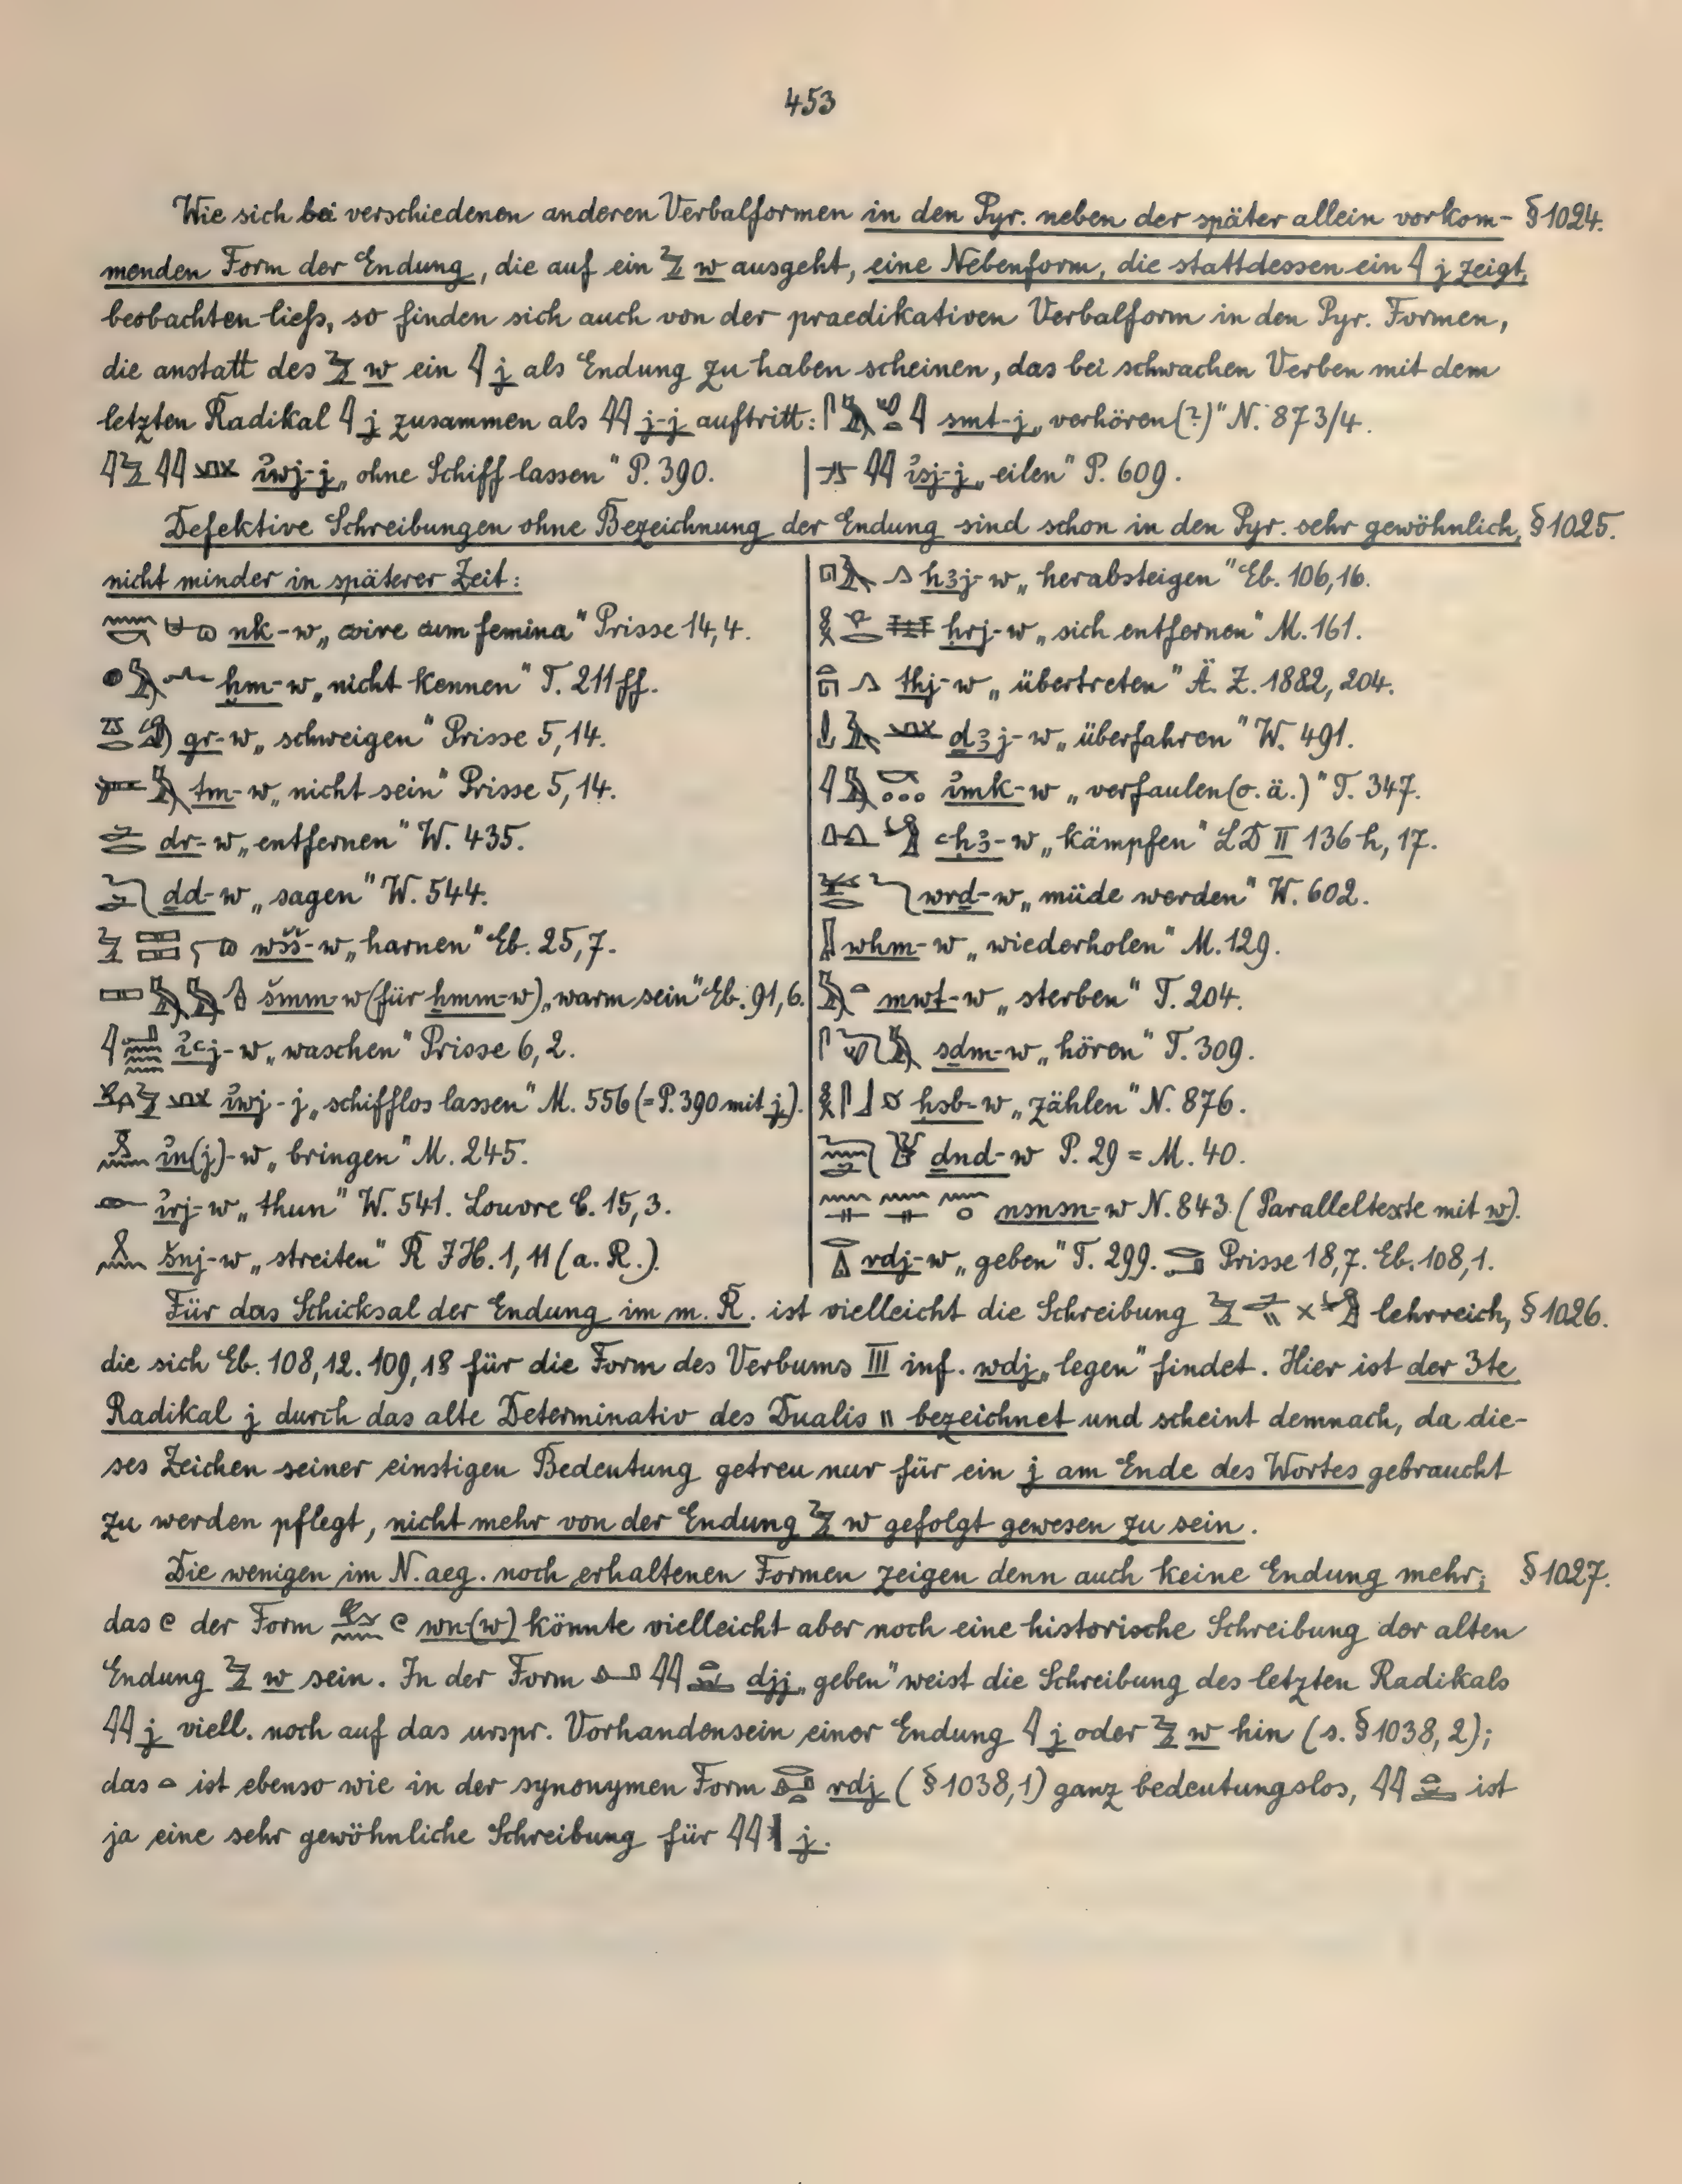 453
Wie sich bei verschiedenen anderen Verbalformen in den Pyr. neben der später allein vorkom- § 1024.
menden Form der Endung, die auf ein 𓅱 w ausgeht, eine Nebenform, die stattdessen ein 𓇋 j zeigt,
beobachten liess, so finden sich auch von der praedikativen Verbalform in den Pyr. Formen,
die anstatt des 𓅱 w ein 𓇋 j als Endung zu haben scheinen, das bei schwachen Verben mit dem
letzten Radikal 𓇋 j zusammen als 𓇋𓇋 j-j auftritt: smt-j „verhören(?)" N. 873/4.
ỉwj-j „ohne Schiff lassen" P. 390.
ỉsj-j „eilen" P. 609.
Defektive Schreibungen ohne Bezeichnung der Endung sind schon in den Pyr. sehr gewöhnlich, § 1025.
nicht minder in späterer Zeit:
nk-w „coire cum femina" Prisse 14,4.
ḫm-w „nicht kennen" T. 211ff.
gr-w „schweigen" Prisse 5,14.
tm-w „nicht sein" Prisse 5,14.
dr-w „entfernen" W. 435.
ḏd-w „sagen" W. 544.
wšš-w „harnen" Eb. 25,7.
šmm-w (für ḫmm-w) „warm sein" Eb. 91,6.
ỉꜥj-w „waschen" Prisse 6,2.
ỉwj-j „schifflos lassen" M. 556 (= P. 390 mit j).
ỉn(j)-w „bringen" M. 245.
ỉrj-w „thun" W. 541. Louvre C. 15,3.
šnj-w „streiten" R IH. 1, 11 (a. R.).
hꜣj-w „herabsteigen" Eb. 106,16.
ḥrj-w „sich entfernen" M. 161.
thj-w „übertreten" Ä. Z. 1882, 204.
ḏꜣj-w „überfahren" W. 491.
ỉmk-w „verfaulen (o. ä.)" T. 347.
ꜥḥꜣ-w „kämpfen" LD II 136 h, 17.
wrḏ-w „müde werden" W. 602.
wḥm-w „wiederholen" M. 129.
mwt-w „sterben" T. 204.
sḏm-w „hören" T. 309.
ḥsb-w „zählen" N. 876.
dnd-w P. 29 = M. 40.
nsnsn-w N. 843 (Paralleltexte mit w).
rdj-w „geben" T. 299. Prisse 18,7. Eb. 108,1.
Für das Schicksal der Endung im m. R. ist vielleicht die Schreibung lehrreich, § 1026.
die sich Eb. 108,12. 109,18 für die Form des Verbums III inf. wdj „legen" findet. Hier ist der 3te
Radikal j durch das alte Determinativ des Dualis \\ bezeichnet und scheint demnach, da die-
ses Zeichen seiner einstigen Bedeutung getreu nur für ein j am Ende des Wortes gebraucht
zu werden pflegt, nicht mehr von der Endung 𓅱 w gefolgt gewesen zu sein.
Die wenigen im N. aeg. noch erhaltenen Formen zeigen denn auch keine Endung mehr; § 1027.
das 𓏲 der Form wn(w) könnte vielleicht aber noch eine historische Schreibung der alten
Endung 𓅱 w sein. In der Form djj „geben" weist die Schreibung des letzten Radikals
𓇋𓇋 j viell. noch auf das urspr. Vorhandensein einer Endung 𓇋 j oder 𓅱 w hin (s. § 1038, 2);
das 𓏏 ist ebenso wie in der synonymen Form rdj (§ 1038,1) ganz bedeutungslos, 𓇋𓇋 ist
ja eine sehr gewöhnliche Schreibung für 𓇋𓇋 j.